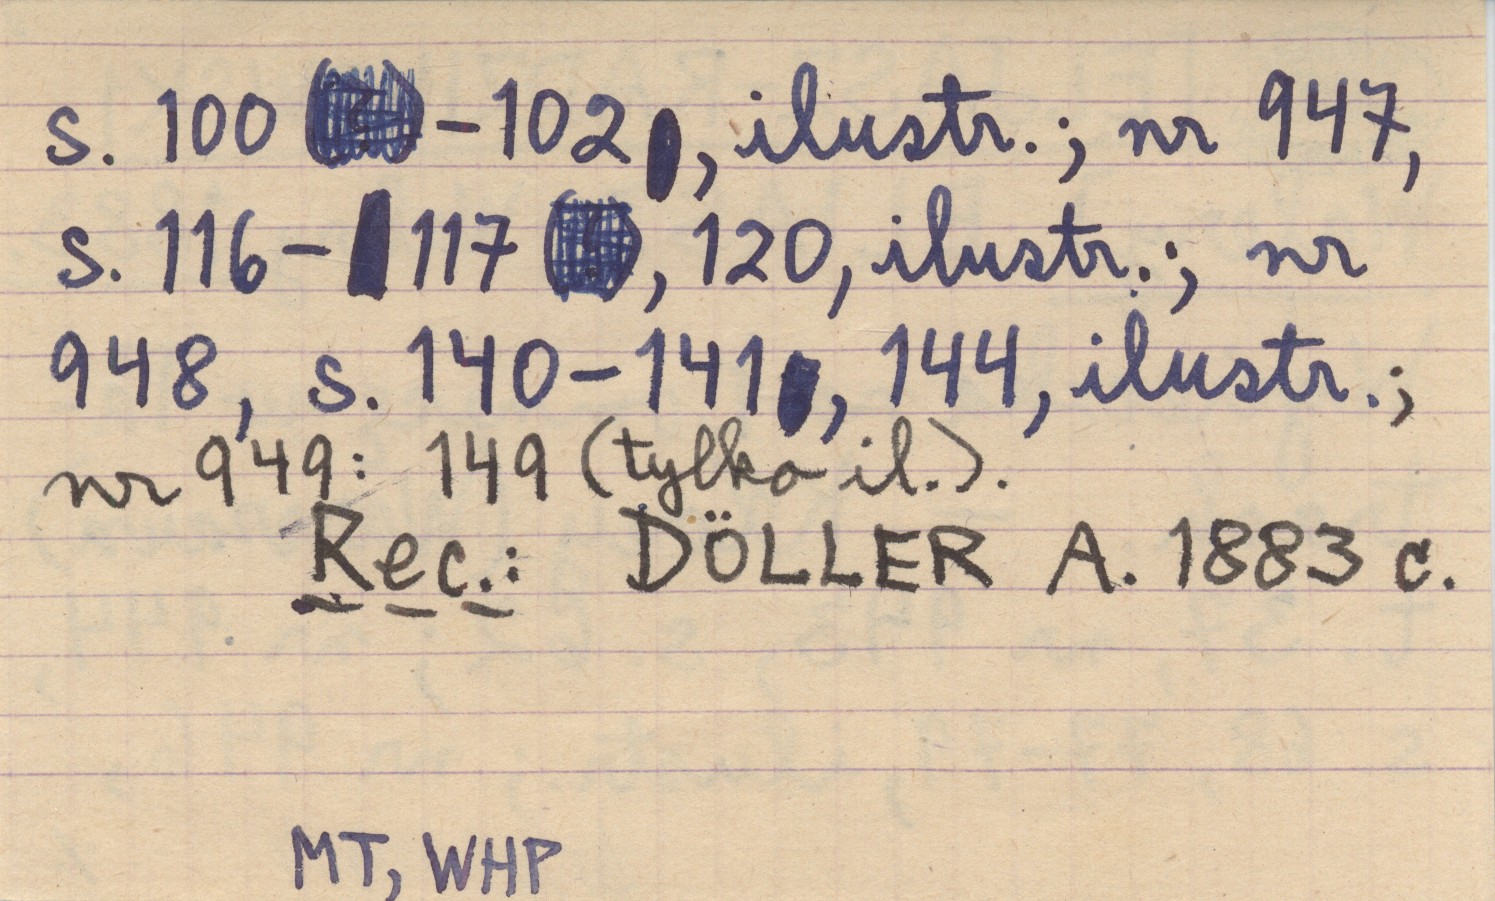 s. 100 -102, ilustr.; nr 947,
s. 116- 117, 120, ilustr.; nr
948, s. 140-141, 144, ilustr.;
nr 949: 149 (tylko il.).
Rec.: DÖLLER A. 1883 c.
MT, WHP